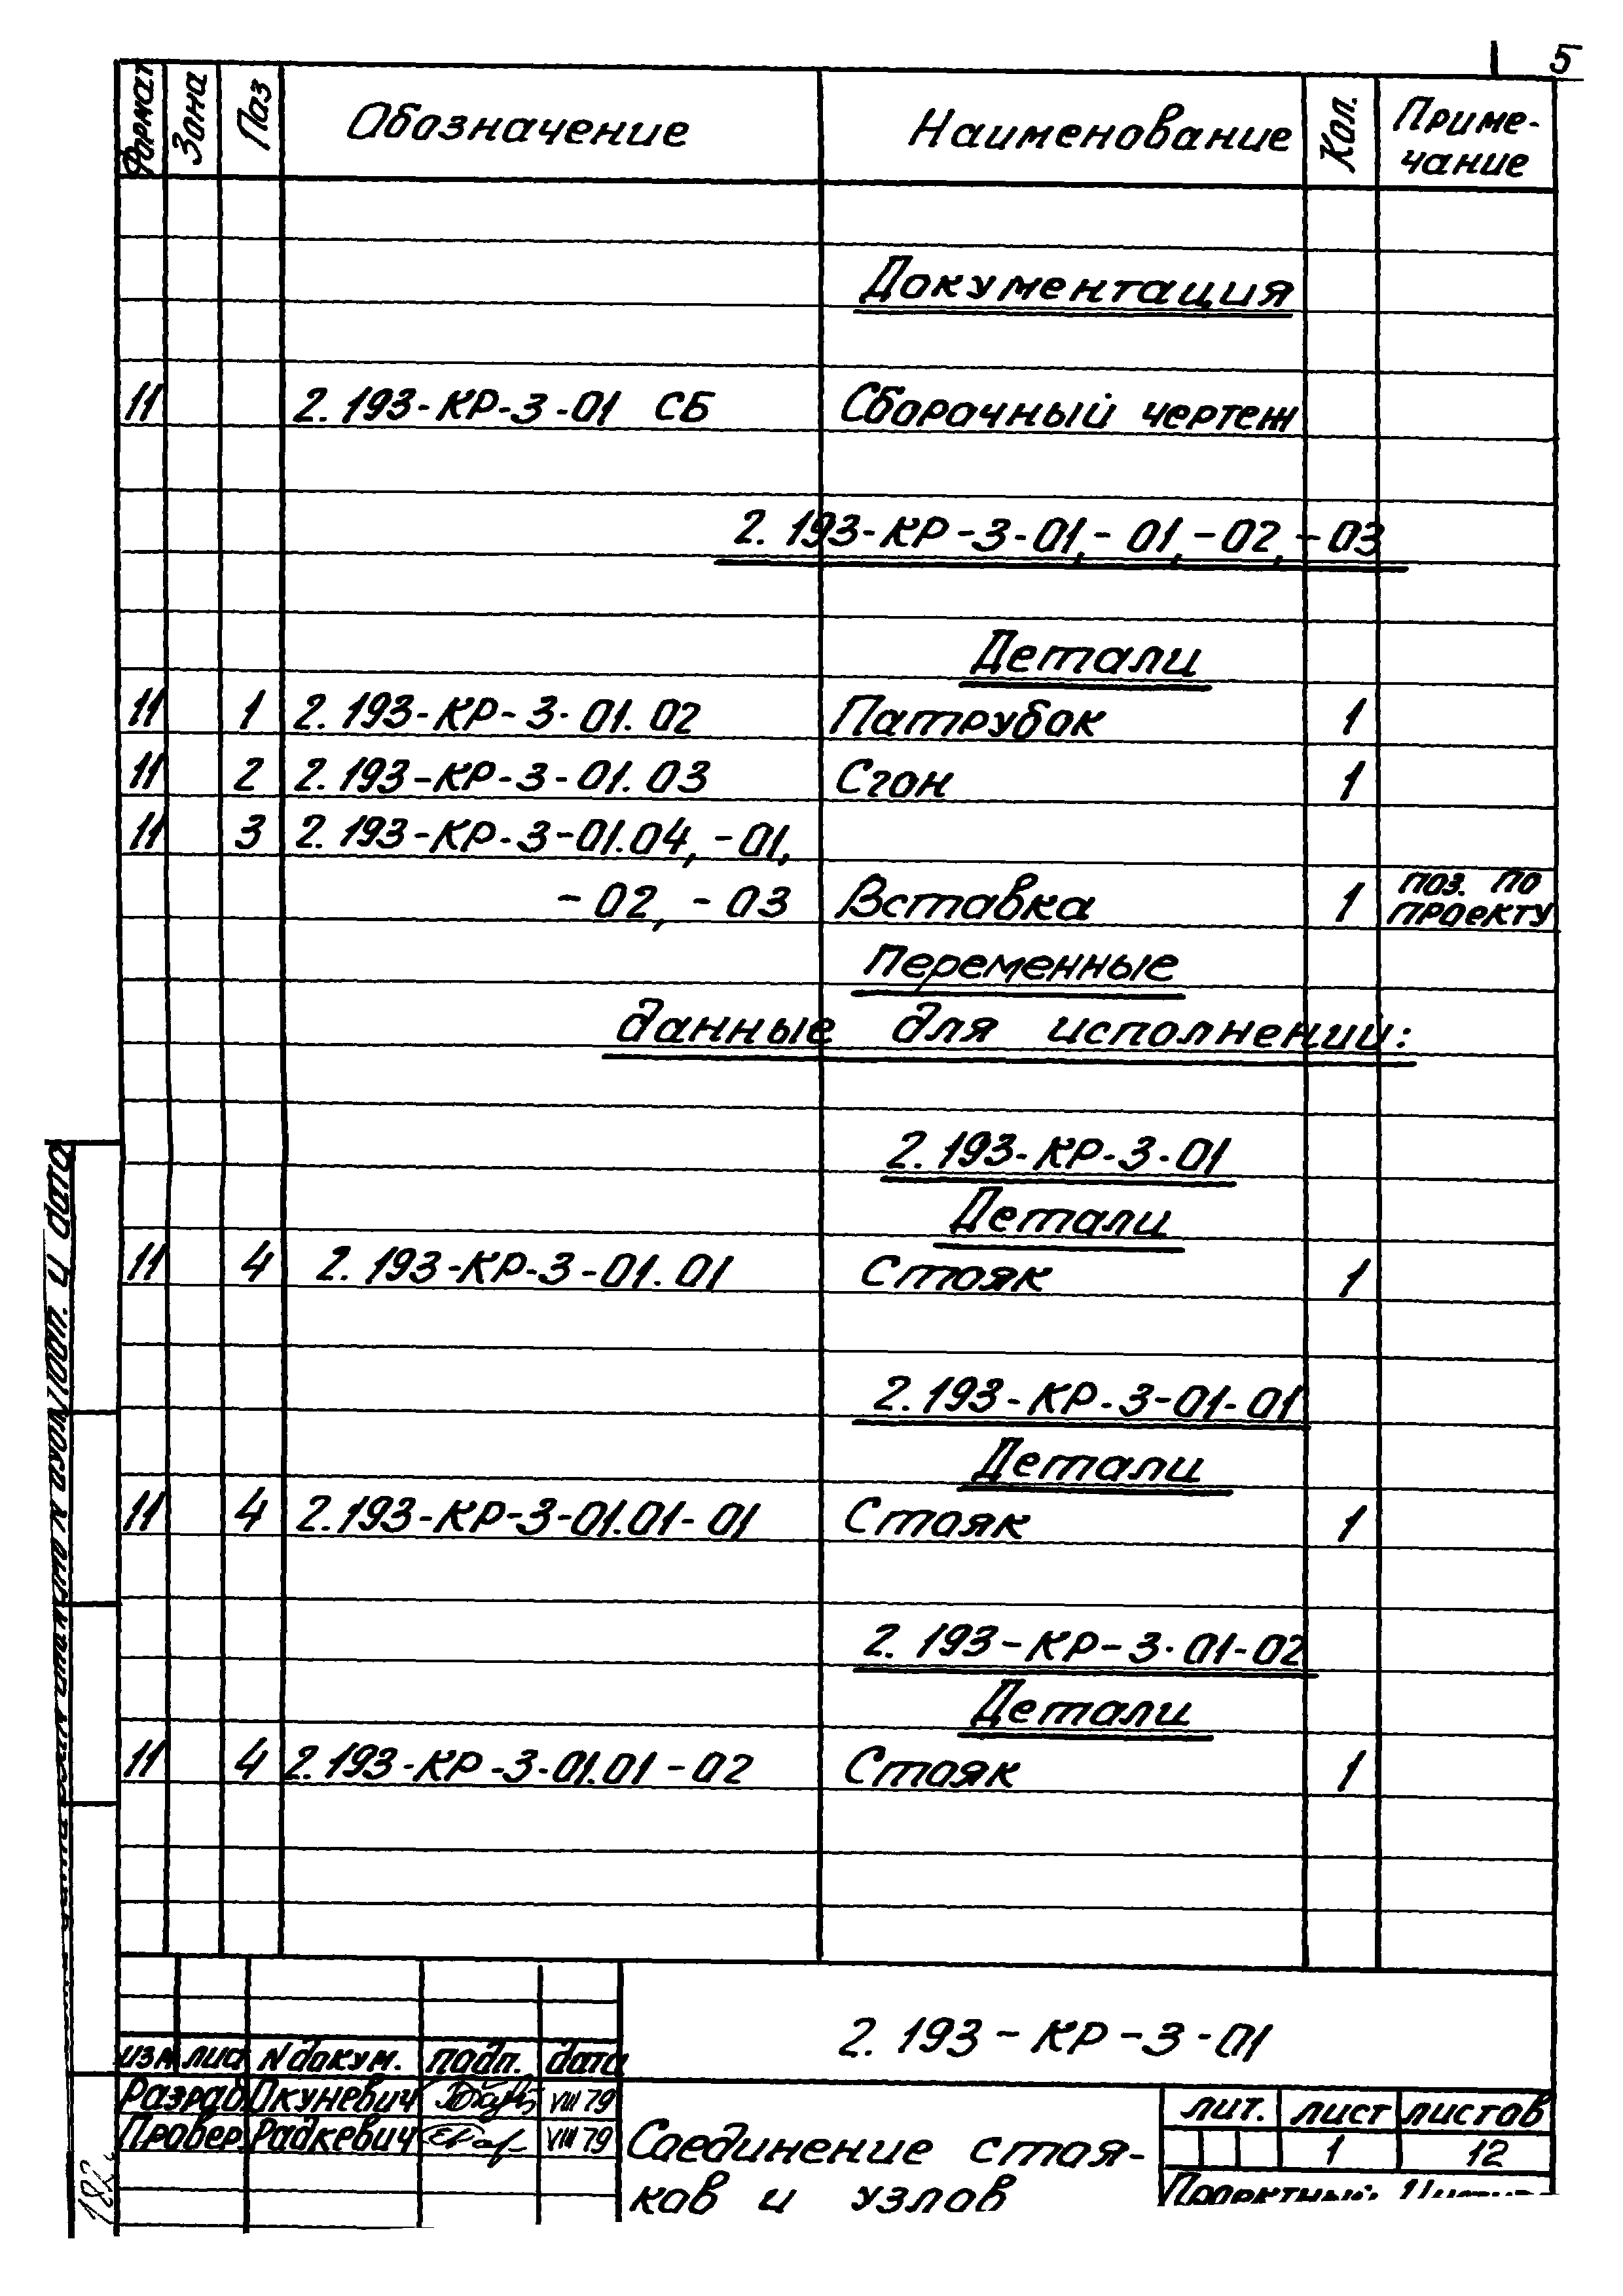 5
Формат Зона Поз Обозначение Наименование Кол. Приме-
чание
Документация
11 2.193-КР-3-01 СБ Сборочный чертеж
2.193-КР-3-01,-01,-02,-03
Детали
11 1 2.193-КР-3-01.02 Патрубок 1
11 2 2.193-КР-3-01.03 Сгон 1
11 3 2.193-КР-3-01.04,-01,
-02,-03 Вставка 1 поз. по
проекту
Переменные
данные для исполнении:
2.193-КР-3-01
Детали
11 4 2.193-КР-3-01.01 Стояк 1
2.193-КР-3-01-01
Детали
11 4 2.193-КР-3-01.01-01 Стояк 1
2.193-КР-3-01-02
Детали
11 4 2.193-КР-3-01.01-02 Стояк 1
2.193-КР-3-01
изм лист N докум. подп. дата
Разраб. Окуневич VIII 79
Провер. Радкевич VIII 79
Соединение стоя-
ков и узлов
лит. лист листов
1 12
Проектный
подп. и дата
182